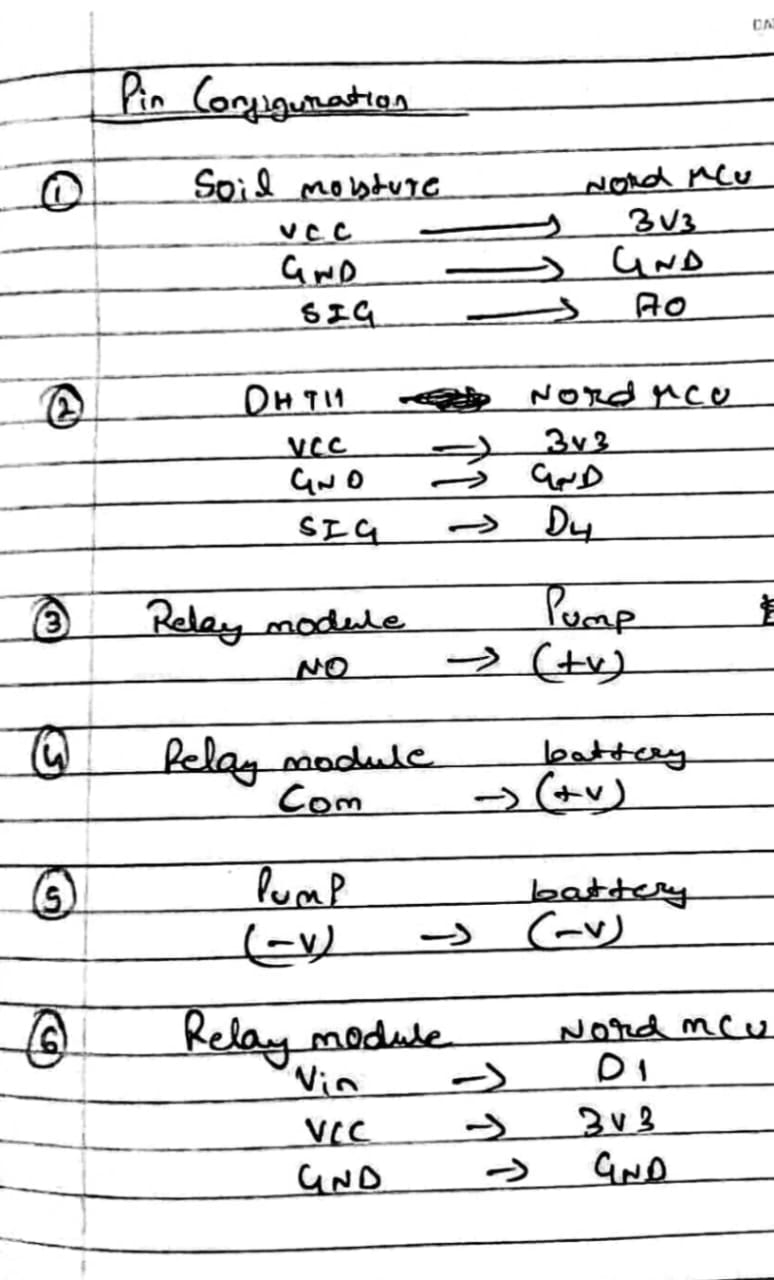 DA
Pin Configuration
① Soil moisture Nord MCU
VCC → 3V3
GND → GND
SIG → A0
② DHT11 Nord MCU
VCC → 3V3
GND → GND
SIG → D4
③ Relay module Pump
NO → (+v)
④ Relay module battery
Com → (+v)
⑤ Pump battery
(-v) → (-v)
⑥ Relay module Nord mcu
Vin → D1
VCC → 3V3
GND → GND